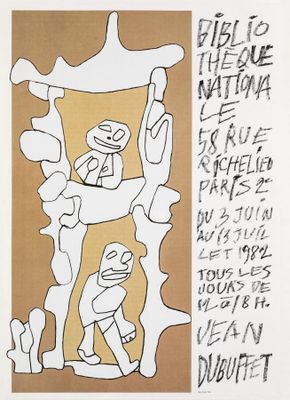 BIBLIO
THEQUE
NATIONA
LE
58 RUE
RICHELIEU
PARIS 2e
DU 3 JUIN
AU 13 JUIL
LET 1982
TOUS LES
JOURS DE
12 à 18 H.
JEAN
DUBUFFET